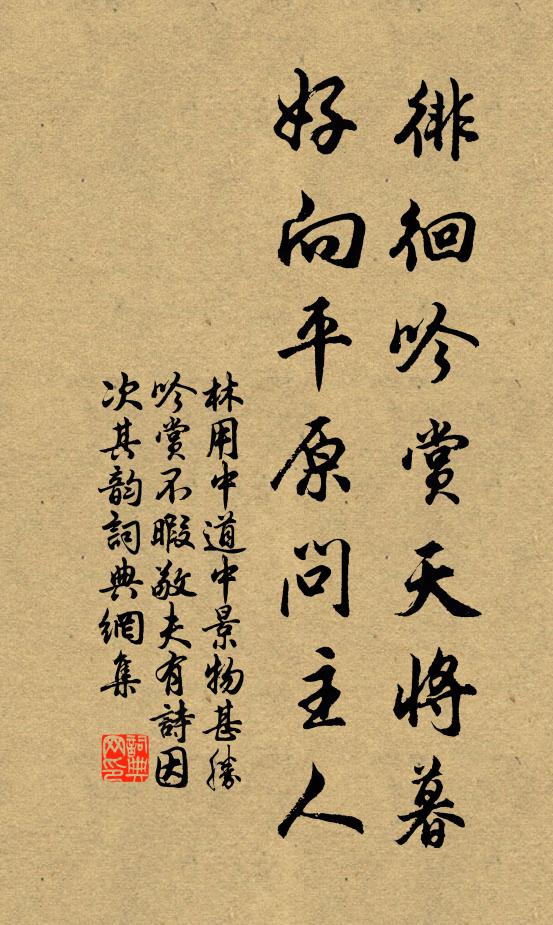 徘徊吟賞天將暮
好向平原問主人
林用中道中景物甚勝
吟賞不暇敬夫有詩因
次其韵詞典網集
詞典网印